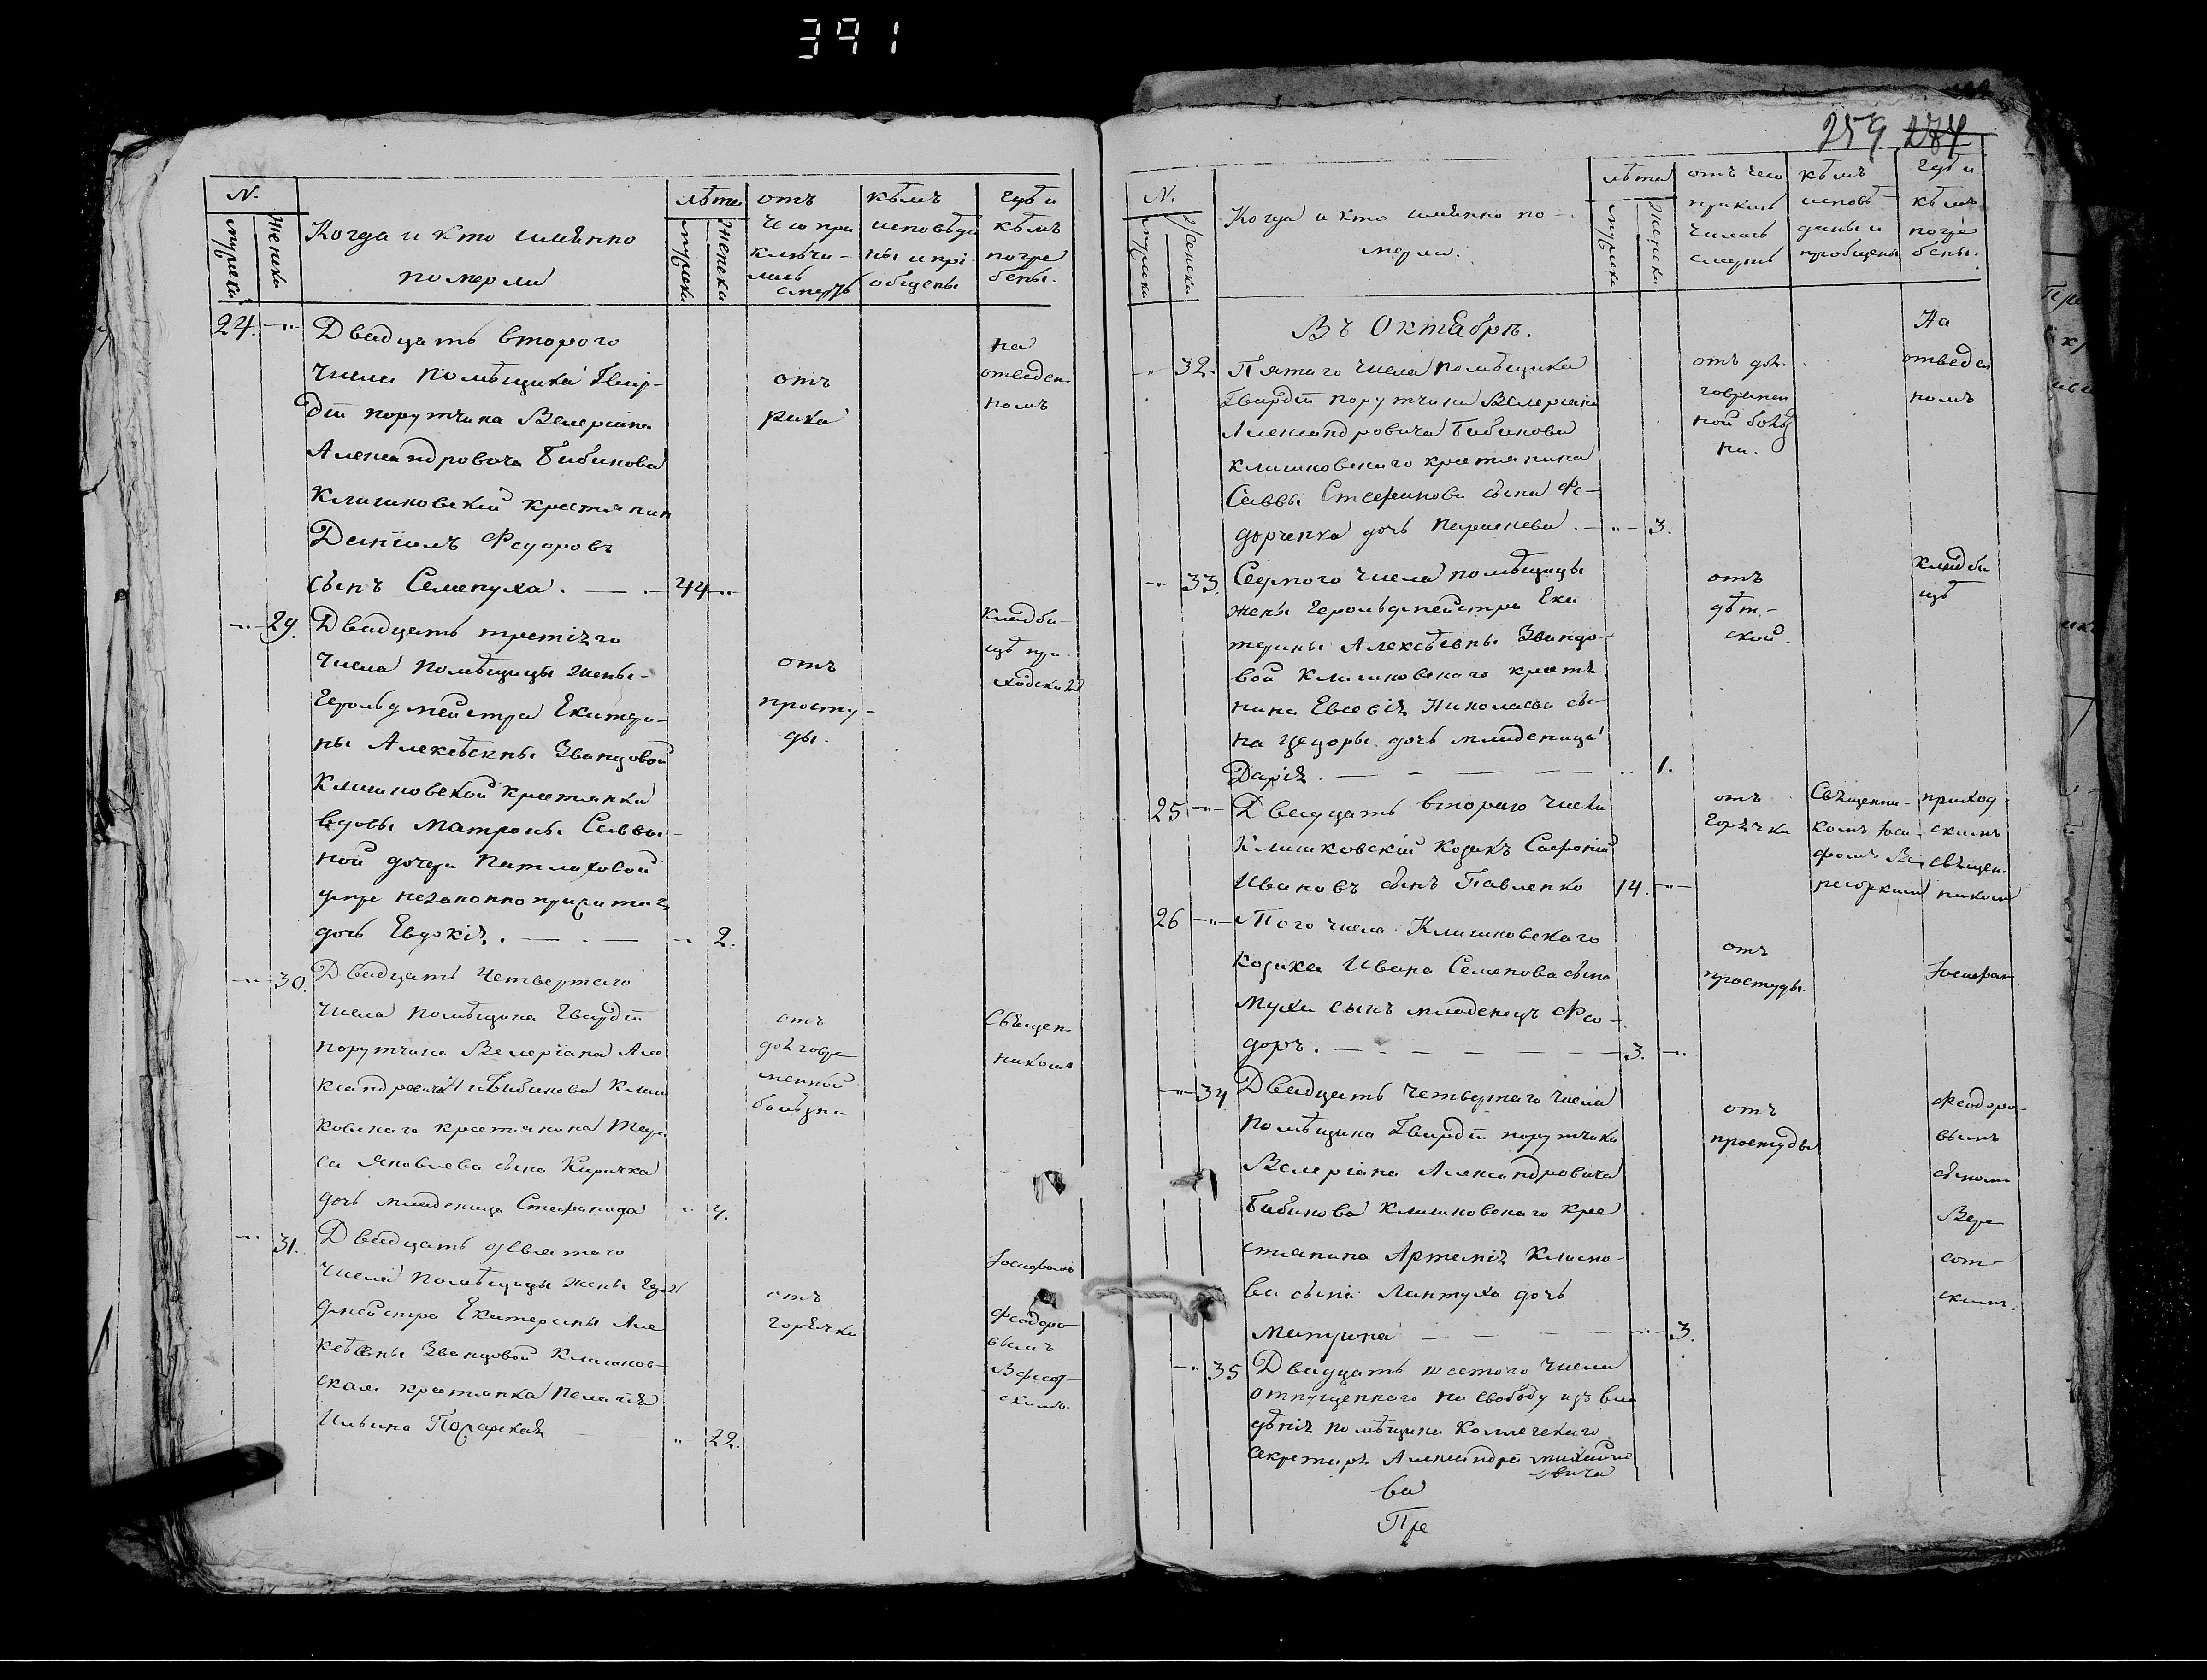 391
259 284
N.
мужеска
женска
Когда и кто имянно
померли
лѣта
мужеска
женска
отъ
чего при
ключи-
лась
смерть
кѣмъ
исповѣда
ны и прі
общены
гдѣ и
кѣмъ
погре
бены.
24. -"- Двадцать второго
числа помѣщика Гвар-
діи порутчика Валеріана
Александровича Бибикова
Клишковскій крестянин
Даніилъ Федоровъ
сынъ Семенуха. — 44 -"-
отъ
рака
на
отведен
номъ
-"- 29. Двадцать третіяго
числа помѣщицы жены
Герольдмейстра Екатери-
ны Алексѣевны Званцовой
Клишковской крестянки
вдовы Матроны Саввы-
ной дочери
незаконноприжитая
дочь Евдокія. — . — -"- 2.
отъ
просту-
ды.
кладби-
щѣ при-
ходским
-"- 30. Двадцать четвертаго
числа помѣщика Гвардіи
порутчика Валеріана Але
ксандровича Бибикова Клиш
ковскаго крестянина Тара
са Яковлева сына Киричка
дочь младеница Стефанида -"- 4.
отъ
долговре
менной
болѣзни
Священ-
никомъ
-"- 31. Двадцать девятаго
числа помѣщицы жены Герол
дмейстра Екатерины Але
ксѣевны Званцовой Клишков-
ская крестянка Пелагія
Ильина — " 22.
отъ
горячки
Іосифомъ
Феодоро-
вымъ
скимъ.
N.
мужеска
женска
Когда и кто имянно по-
мерли.
лѣта
мужеска
женска
отъ чего
приклю
чилась
смерть
кѣмъ
исповѣ-
даны и
пробщены
гдѣ и
кѣмъ
погре
бены.
Въ Октябрѣ.
-"- 32. Пятаго числа помѣщика
Гвардіи порутчика Валеріана
Александровича Бибикова
клишковскаго крестянина
Саввы Стефанова сына Фе-
дорченка дочь Параскева. -"- 3.
отъ дол-
говремен
ной болѣз
ни.
На
отведен
номъ
-"- 33. Седмого числа помѣщицы
жены Герольдмейстра Ека
терины Алексѣевны Званцо-
вой Клишковскаго крестя
нина Евсевія Николаева сы-
на Цецоры дочь младеница
Дарія. — — — — " 1.
отъ
дѣт-
ской.
кладби
щѣ
25 -"- Двадцать втораго числа
Клишковскій козакъ Софроній
Ивановъ сынъ Павленко 14. -"-
отъ
горячки
Священни-
комъ Іоси-
фомъ Ве
ресоцкимъ
приход-
скимъ
священ-
никомъ
26 -"- Того числа Клишковскаго
козака Ивана Семенова сына
Мухи сынъ младенецъ Фео-
доръ. — — — — 3. -"-
отъ
простуды.
Іосифом
-"- 34 Двадцать четвертаго числа
Помѣщика Гвардіи порутчика
Валеріана Александровича
Бибикова Клишковскаго кре
стянина Артемія Климо-
ва сына Лантуха дочь
— — — — -"- 3.
отъ
простуды
Феодоро-
вымъ
сыномъ
Вере
сот-
скимъ.
-"- 35 Двадцать шестого числа
отпущенного на свободу изъ вла
дѣнія помѣщика Коллежскаго
Секретаря Александра Михайло
вича
ва
Пре